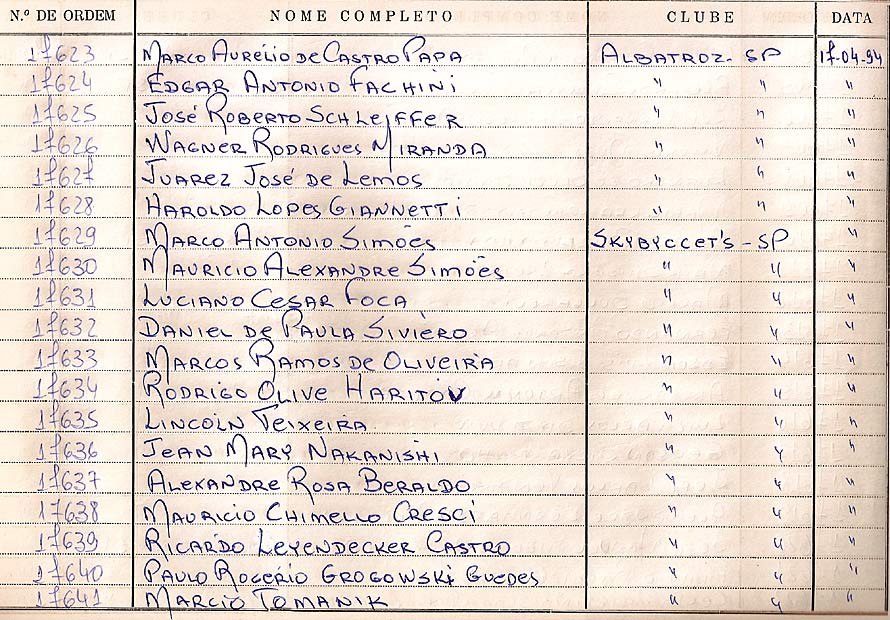 N.º DE ORDEM NOME COMPLETO CLUBE DATA
17623 MARCO AURÉLIO DE CASTRO PAPA ALBATROZ - SP 17-04-94
17624 EDGAR ANTONIO FACHINI " " "
17625 JOSÉ ROBERTO SCHLEIFFER " " "
17626 WAGNER RODRIGUES MIRANDA " " "
17627 JUAREZ JOSÉ DE LEMOS " " "
17628 HAROLDO LOPES GIANNETTI " " "
17629 MARCO ANTONIO SIMÕES SKYBYCCET'S - SP "
17630 MAURICIO ALEXANDRE SIMÕES " " "
17631 LUCIANO CESAR FOCA " " "
17632 DANIEL DE PAULA SIVIÉRO " " "
17633 MARCOS RAMOS DE OLIVEIRA " " "
17634 RODRIGO OLIVE HARITOV " " "
17635 LINCOLN TEIXEIRA " " "
17636 JEAN MARY NAKANISHI " " "
17637 ALEXANDRE ROSA BERALDO " " "
17638 MAURICIO CHIMELLO CRESCI " " "
17639 RICARDO LEYENDECKER CASTRO " " "
17640 PAULO ROGÉRIO GROGOWSKI GUEDES " " "
17641 MARCIO TOMANIK " " "